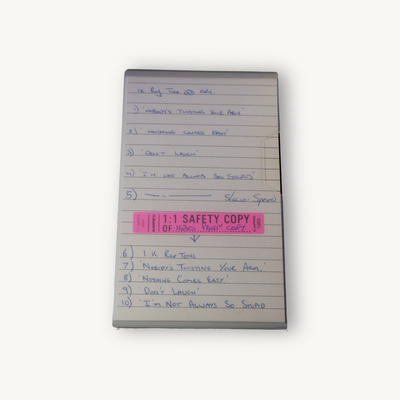 1K Ref Tone
1) 'Nobody's Twisting Your Arm'
2) 'Nothing Comes Easy'
3) 'Don't Laugh'
4) 'I'm Not Always So Stupid'
5) Slower Speed
1:1 SAFETY COPY
OF COPY
6) 1K Ref Tone
7) 'Nobody's Twisting Your Arm.'
8) 'Nothing Comes Easy.'
9) 'Don't Laugh'
10) 'I'm Not Always So Stupid